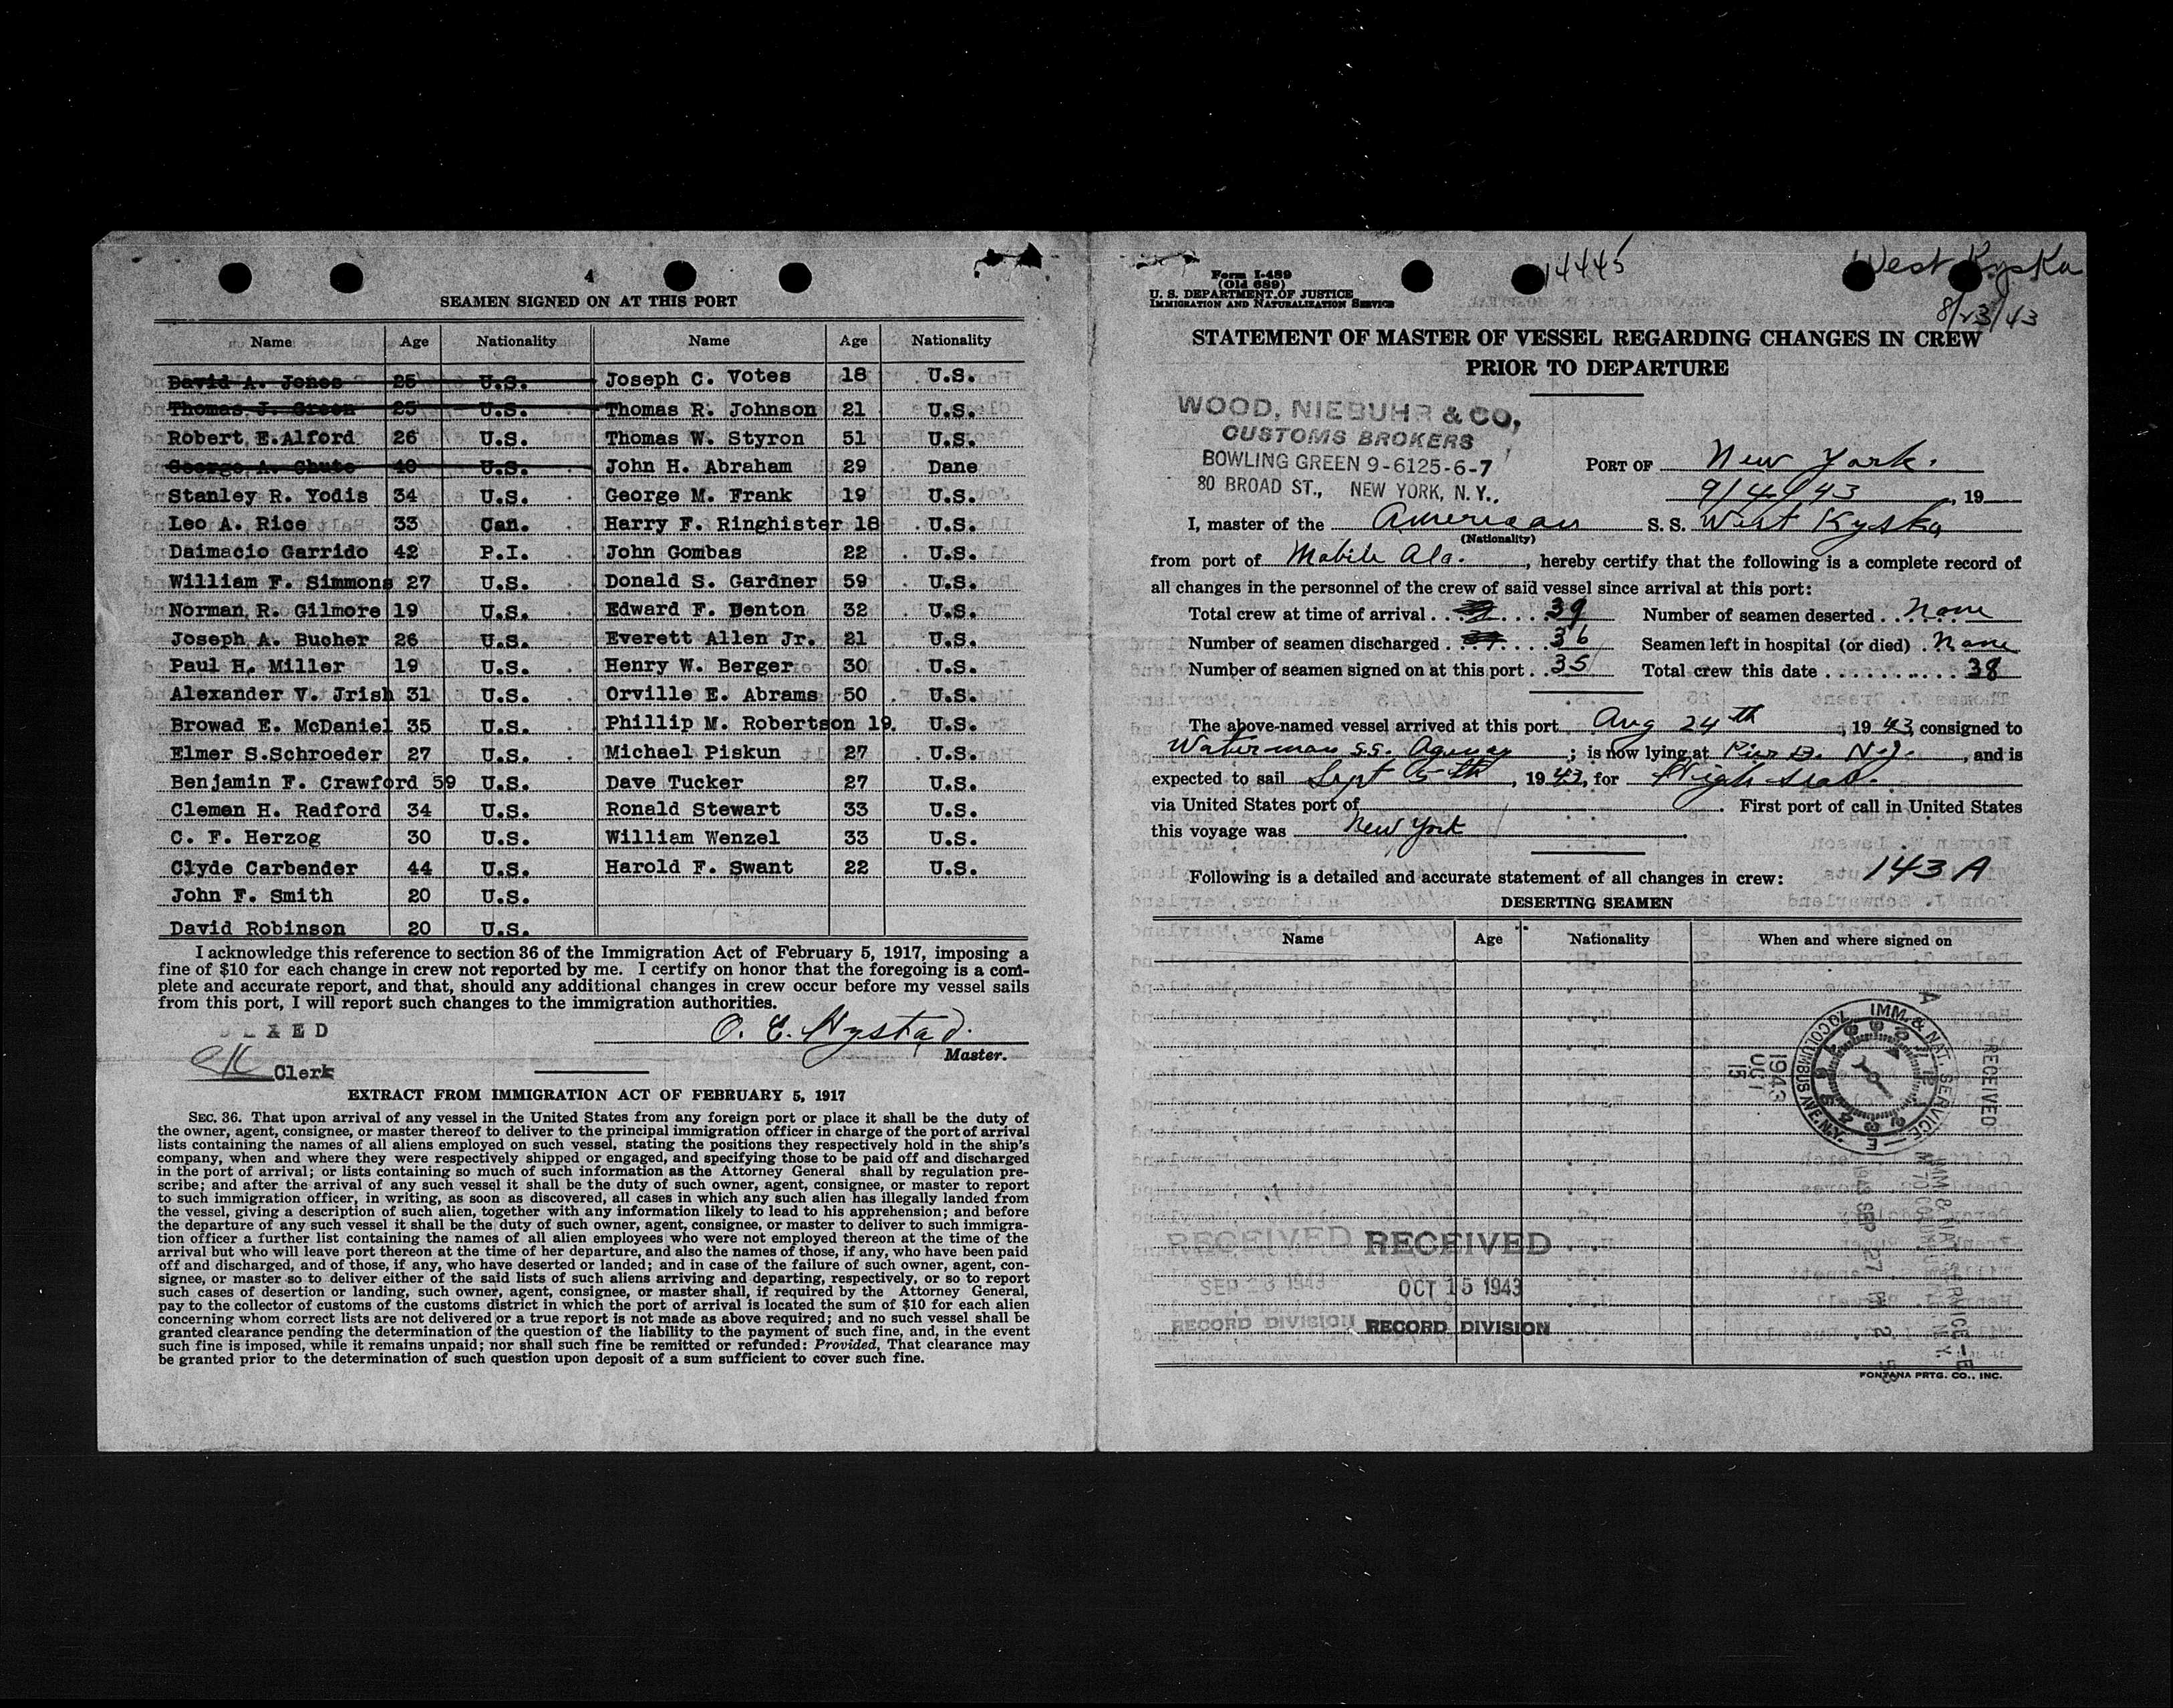 4
SEAMEN SIGNED ON AT THIS PORT
Name Age Nationality Name Age Nationality
David A. Jones 25 U.S. Joseph C. Votes 18 U.S.
Thomas J. Green 25 U.S. Thomas R. Johnson 21 U.S.
Robert E.Alford 26 U.S. Thomas W. Styron 51 U.S.
George A. Chute 40 U.S. John H. Abraham 29 Dane
Stanley R. Yodis 34 U.S. George M. Frank 19 U.S.
Leo A. Rice 33 Can. Harry F. Ringhister 18 U.S.
Daimacio Garrido 42 P.I. John Gombas 22 U.S.
William F. Simmons 27 U.S. Donald S. Gardner 59 U.S.
Norman R. Gilmore 19 U.S. Edward F. Denton 32 U.S.
Joseph A. Bucher 26 U.S. Everett Allen Jr. 21 U.S.
Paul H. Miller 19 U.S. Henry W. Berger 30 U.S.
Alexander V. Jrish 31 U.S. Orville E. Abrams 50 U.S.
Browad E. McDaniel 35 U.S. Phillip M. Robertson 19. U.S.
Elmer S.Schroeder 27 U.S. Michael Piskun 27 U.S.
Benjamin F. Crawford 59 U.S. Dave Tucker 27 U.S.
Clemen H. Radford 34 U.S. Ronald Stewart 33 U.S.
C. F. Herzog 30 U.S. William Wenzel 33 U.S.
Clyde Carbender 44 U.S. Harold F. Swant 22 U.S.
John F. Smith 20 U.S.
David Robinson 20 U.S.
I acknowledge this reference to section 36 of the Immigration Act of February 5, 1917, imposing a
fine of $10 for each change in crew not reported by me. I certify on honor that the foregoing is a com-
plete and accurate report, and that, should any additional changes in crew occur before my vessel sails
from this port, I will report such changes to the immigration authorities.
O. E. Hystad.
Master.
Clerk
EXTRACT FROM IMMIGRATION ACT OF FEBRUARY 5, 1917
SEC. 36. That upon arrival of any vessel in the United States from any foreign port or place it shall be the duty of
the owner, agent, consignee, or master thereof to deliver to the principal immigration officer in charge of the port of arrival
lists containing the names of all aliens employed on such vessel, stating the positions they respectively hold in the ship's
company, when and where they were respectively shipped or engaged, and specifying those to be paid off and discharged
in the port of arrival; or lists containing so much of such information as the Attorney General shall by regulation pre-
scribe; and after the arrival of any such vessel it shall be the duty of such owner, agent, consignee, or master to report
to such immigration officer, in writing, as soon as discovered, all cases in which any such alien has illegally landed from
the vessel, giving a description of such alien, together with any information likely to lead to his apprehension; and before
the departure of any such vessel it shall be the duty of such owner, agent, consignee, or master to deliver to such immigra-
tion officer a further list containing the names of all alien employees who were not employed thereon at the time of the
arrival but who will leave port thereon at the time of her departure, and also the names of those, if any, who have been paid
off and discharged, and of those, if any, who have deserted or landed; and in case of the failure of such owner, agent, con-
signee, or master so to deliver either of the said lists of such aliens arriving and departing, respectively, or so to report
such cases of desertion or landing, such owner, agent, consignee, or master shall, if required by the Attorney General,
pay to the collector of customs of the customs district in which the port of arrival is located the sum of $10 for each alien
concerning whom correct lists are not delivered or a true report is not made as above required; and no such vessel shall be
granted clearance pending the determination of the question of the liability to the payment of such fine, and, in the event
such fine is imposed, while it remains unpaid; nor shall such fine be remitted or refunded: Provided, That clearance may
be granted prior to the determination of such question upon deposit of a sum sufficient to cover such fine.
14445
West Kyska
8/23/43
Form I-489
(Old 689)
U. S. DEPARTMENT OF JUSTICE
IMMIGRATION AND NATURALIZATION SERVICE
STATEMENT OF MASTER OF VESSEL REGARDING CHANGES IN CREW
PRIOR TO DEPARTURE
WOOD, NIEBUHR & CO,
CUSTOMS BROKERS
BOWLING GREEN 9-6125-6-7
80 BROAD ST., NEW YORK, N. Y.
PORT OF New York.
9/4/43, 19
I, master of the American S. S. West Kyska
(Nationality)
from port of Mobile Ala., hereby certify that the following is a complete record of
all changes in the personnel of the crew of said vessel since arrival at this port:
Total crew at time of arrival 39 Number of seamen deserted None
Number of seamen discharged 36 Seamen left in hospital (or died) None
Number of seamen signed on at this port 35 Total crew this date 38
The above-named vessel arrived at this port Aug 24th, 1943, consigned to
Waterman S.S. Agency; is now lying at Pier D. N.J., and is
expected to sail Sept 5th, 1943, for High seas.
via United States port of . First port of call in United States
this voyage was New York
Following is a detailed and accurate statement of all changes in crew: 143 A
DESERTING SEAMEN
Name Age Nationality When and where signed on
RECEIVED
IMM. & NAT. SERVICE — E
70 COLUMBUS AVE. N.Y.
1943 OCT 15
RECEIVED RECEIVED
SEP 28 1943 OCT 15 1943
RECORD DIVISION RECORD DIVISION
1943 SEP 27
FONTANA PRTG. CO., INC.